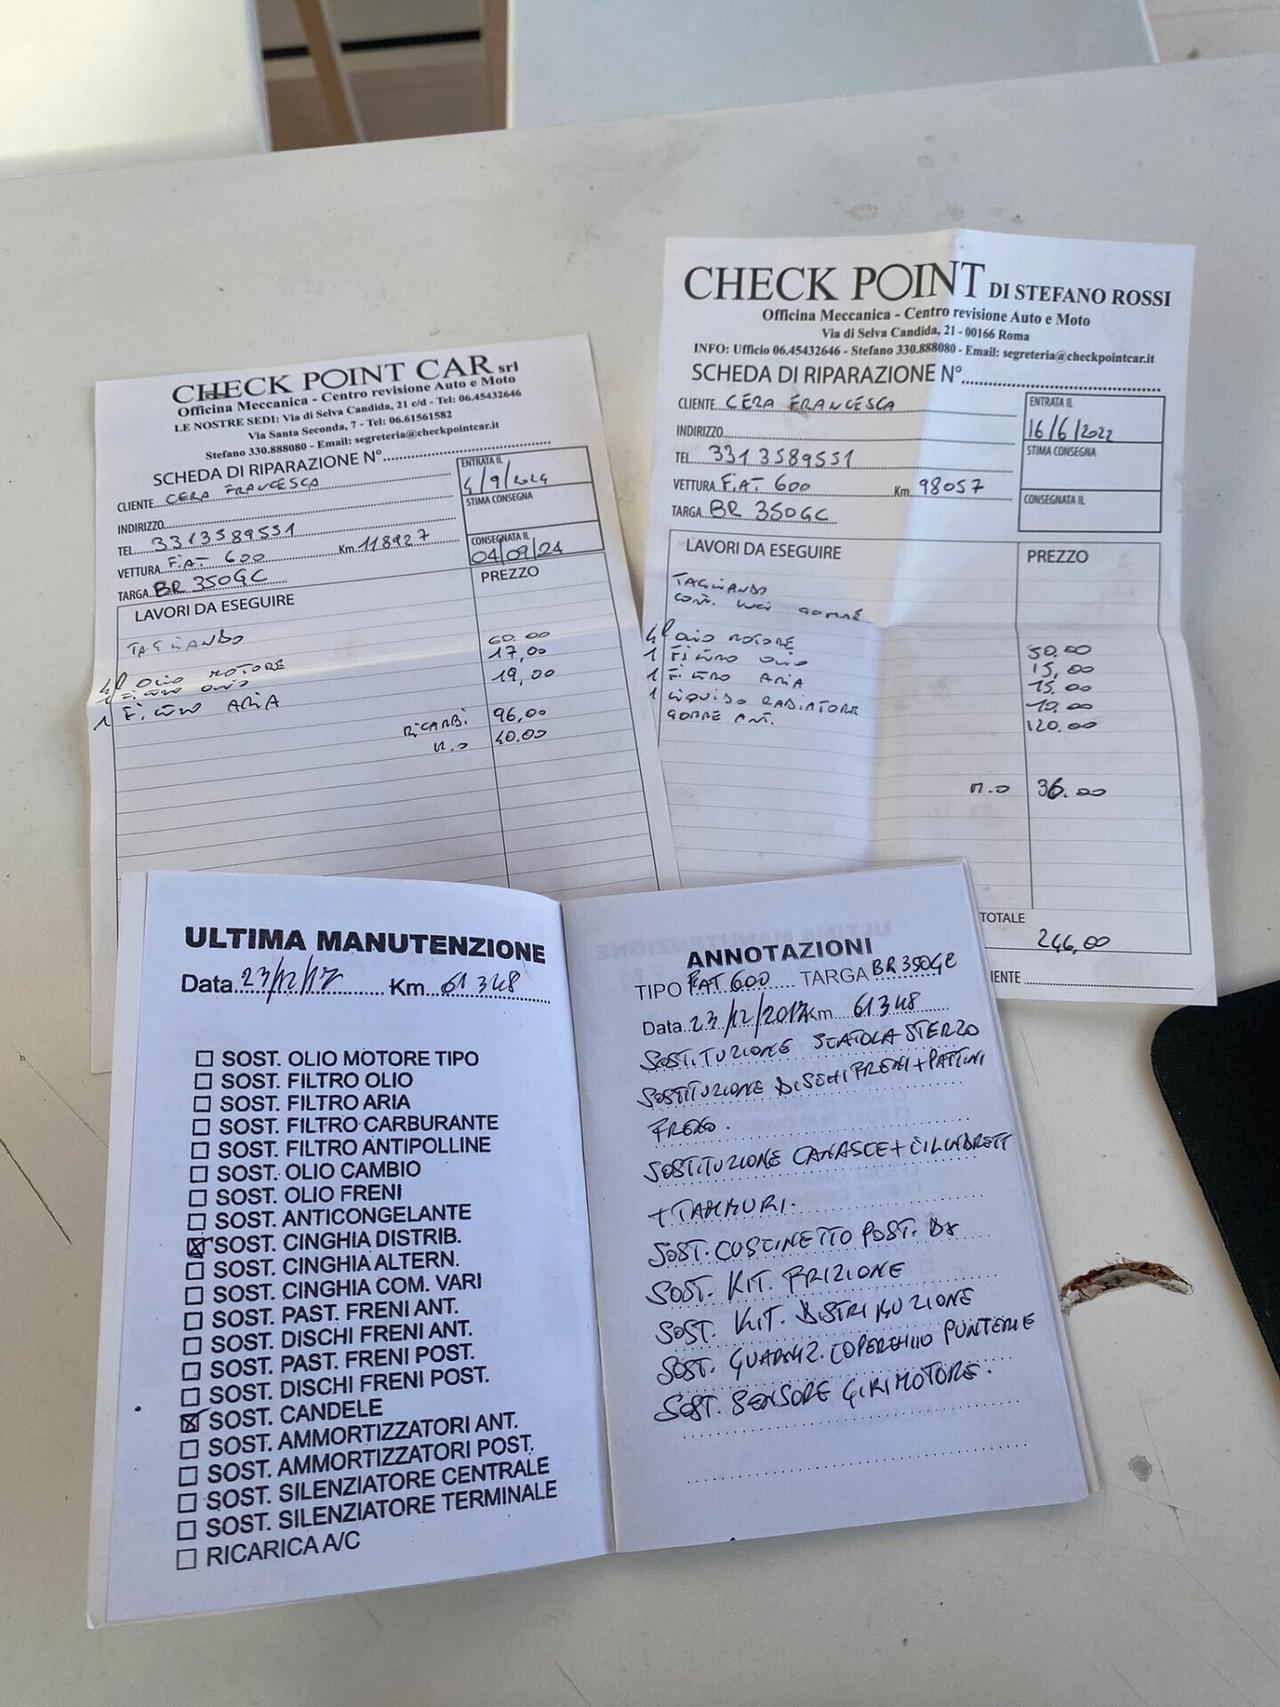 CHECK POINT CAR srl
Officina Meccanica - Centro revisione Auto e Moto
LE NOSTRE SEDI: Via di Selva Candida, 21 c/d - Tel: 06.45432646
Via Santa Seconda, 7 - Tel: 06.61561582
Stefano 330.888080 - Email: segreteria@checkpointcar.it
SCHEDA DI RIPARAZIONE N°
CLIENTE CERA FRANCESCA
ENTRATA IL
4/9/2024
INDIRIZZO
STIMA CONSEGNA
TEL 3313589551
VETTURA FIAT 600 Km 118927
CONSEGNATA IL
04/09/24
TARGA BR 350GC
LAVORI DA ESEGUIRE PREZZO
TAGLIANDO
4l OLIO MOTORE 60.00
1 FILTRO OLIO 17,00
1 FILTRO ARIA 19,00
RICAMBI 96,00
M.O 40.00
CHECK POINT DI STEFANO ROSSI
Officina Meccanica - Centro revisione Auto e Moto
Via di Selva Candida, 21 - 00166 Roma
INFO: Ufficio 06.45432646 - Stefano 330.888080 - Email: segreteria@checkpointcar.it
SCHEDA DI RIPARAZIONE N°
CLIENTE CERA FRANCESCA
ENTRATA IL
16/6/2022
INDIRIZZO
STIMA CONSEGNA
TEL 3313589551
VETTURA FIAT 600 Km 98057
CONSEGNATA IL
TARGA BR 350GC
LAVORI DA ESEGUIRE PREZZO
TAGLIANDO
CON. LUCI GOMME
4l OLIO MOTORE 50.00
1 FILTRO OLIO 15,00
1 FILTRO ARIA 15.00
1 LIQUIDO RADIATORE 10.00
GOMME ANT. 120.00
M.O 36.00
TOTALE 246,00
IENTE
ULTIMA MANUTENZIONE
Data 23/12/17 Km 61348
SOST. OLIO MOTORE TIPO
SOST. FILTRO OLIO
SOST. FILTRO ARIA
SOST. FILTRO CARBURANTE
SOST. FILTRO ANTIPOLLINE
SOST. OLIO CAMBIO
SOST. OLIO FRENI
SOST. ANTICONGELANTE
SOST. CINGHIA DISTRIB.
SOST. CINGHIA ALTERN.
SOST. CINGHIA COM. VARI
SOST. PAST. FRENI ANT.
SOST. DISCHI FRENI ANT.
SOST. PAST. FRENI POST.
SOST. DISCHI FRENI POST.
SOST. CANDELE
SOST. AMMORTIZZATORI ANT.
SOST. AMMORTIZZATORI POST.
SOST. SILENZIATORE CENTRALE
SOST. SILENZIATORE TERMINALE
RICARICA A/C
ANNOTAZIONI
TIPO FIAT 600 TARGA BR350GC
Data 23/12/2017 Km 61348
SOSTITUZIONE SCATOLA STERZO
SOSTITUZIONE DISCHI FRENI + PATTINI
FRENO.
SOSTITUZIONE GANASCE + CILINDRETT
+ TAMBURI.
SOST. CUSCINETTO POST. DX
SOST. KIT. FRIZIONE
SOST. KIT. DISTRIBUZIONE
SOST. GUARNIZ. COPERCHIO PUNTERIE
SOST. SENSORE GIRI MOTORE.